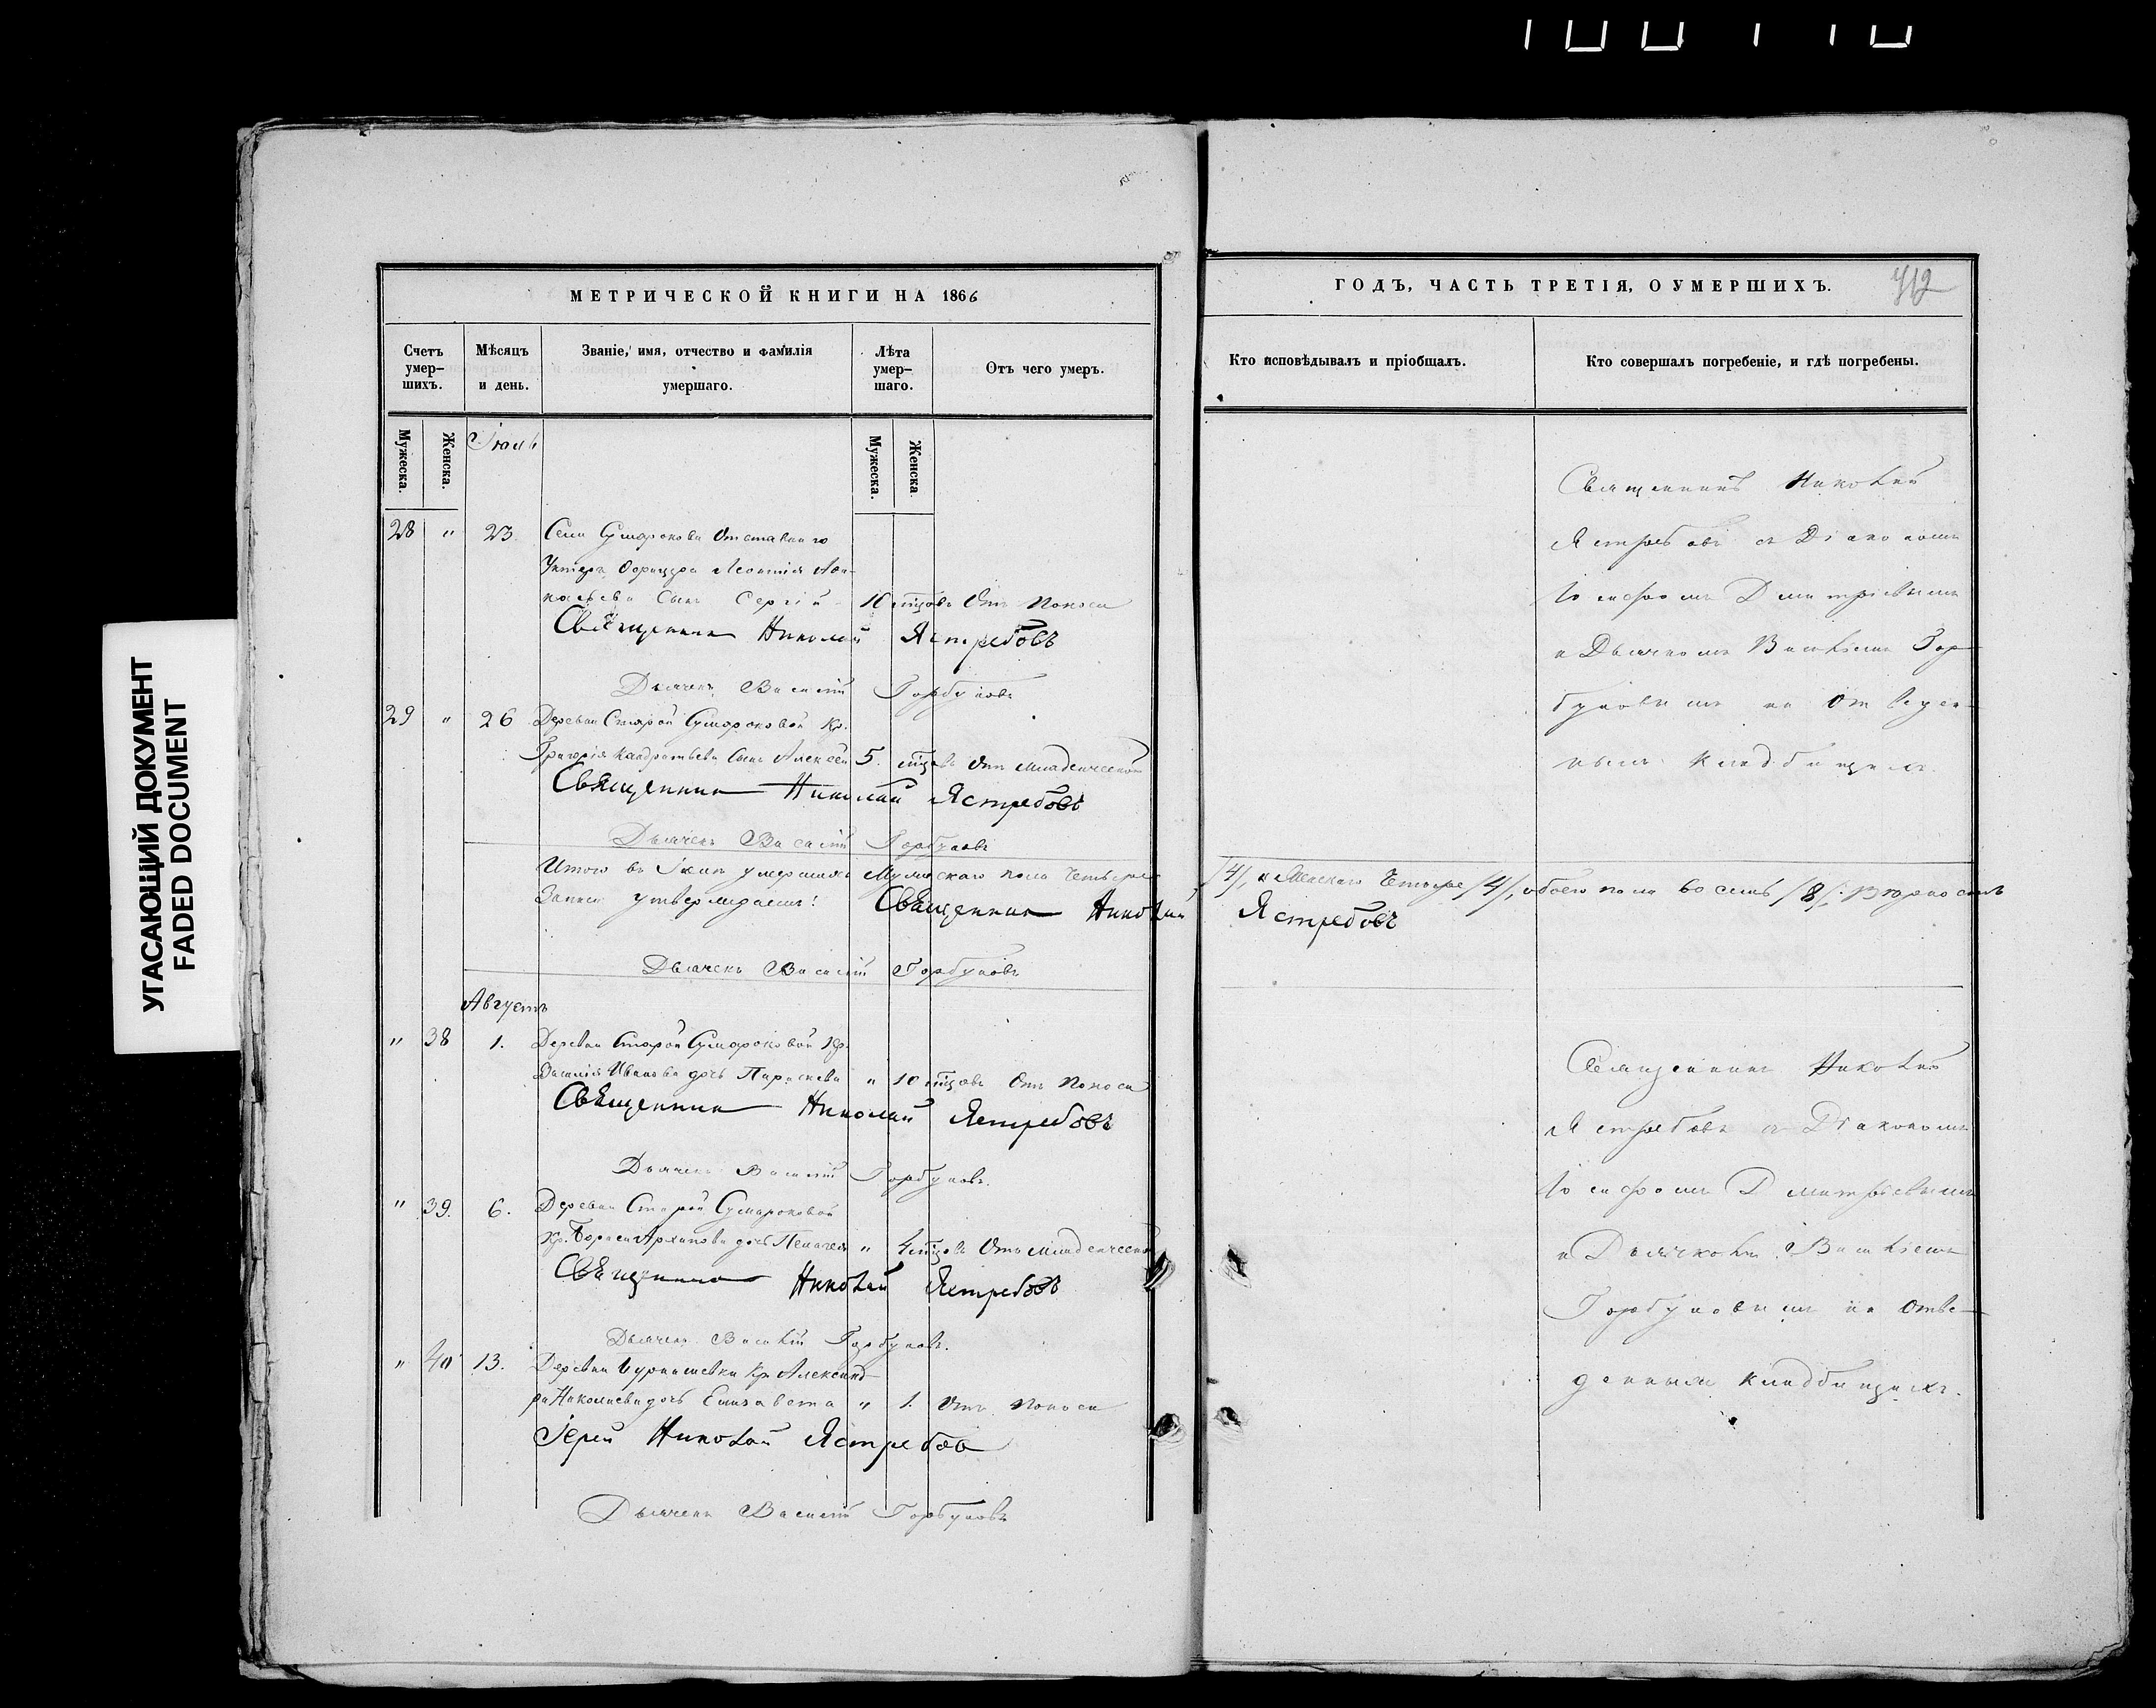 УГАСАЮЩИЙ ДОКУМЕНТ
FADED DOCUMENT
МЕТРИЧЕСКОЙ КНИГИ НА 1866
Счетъ умер- шихъ.
Мѣсяцъ и день.
Званіе, имя, отчество и фамилія умершаго.
Лѣта умер- шаго.
Отъ чего умеръ.
Мужеска.
Женска.
Іюль
Мужеска.
Женска
28 " 23. Села Сумарокова отставнаго
Унтеръ Офицера Леонтія
сынъ Сергій 10 мѣсяцовъ Отъ поноса
Священникъ Николай Ястребовъ
Дьячекъ Василій Горбуновъ
29 " 26 Деревни Старой Сумароковой Кр.
Григорія Кандратьева сынъ Алексѣй 5. мѣсяцовъ Отъ младенческой
Священникъ Николай Ястребовъ
Дьячекъ Василій Горбуновъ
Итого въ Іюлѣ умершихъ Мужескаго пола четыре
Записи утверждаемъ: Священникъ Николай
Дьячекъ Василій Горбуновъ
Августъ
" 38 1. Деревни Старой Сумароковой Кр.
Василія Иванова дочь Параскева " 10 мѣсяцовъ Отъ поноса
Священникъ Николай Ястребовъ
Дьячекъ Василій Горбуновъ.
" 39. 6. Деревни Старой Сумароковой
Кр. Бориса Архипова дочь Пелагея " 4 мѣсяцовъ Отъ младенческой
Священникъ Николай Ястребовъ
Дьячекъ Василій Горбуновъ.
" 40 13. Деревни Бурнашевки Кр. Александ-
ра Николаева дочь Елизавета " 1. Отъ поноса
Іерей Николай Ястребовъ
Дьячекъ Василій Горбуновъ
ГОДЪ, ЧАСТЬ ТРЕТІЯ, О УМЕРШИХЪ.
412
Кто исповѣдывалъ и пріобщалъ.
Кто совершалъ погребеніе, и гдѣ погребены.
Священникъ Николай
Ястребовъ съ Діакономъ
Іосифомъ Димитріевымъ
и Дьячкомъ Василіемъ Гор-
буновымъ на отведен-
номъ кладбищѣ.
/4/, и Женскаго четыре /4/, обоего пола восемь /8/.
Ястребовъ
Священникъ Николай
Ястребовъ съ Діакономъ
Іосифомъ Димитріевымъ
и Дьячкомъ Василіемъ
Горбуновымъ на отве-
денномъ кладбищѣ.